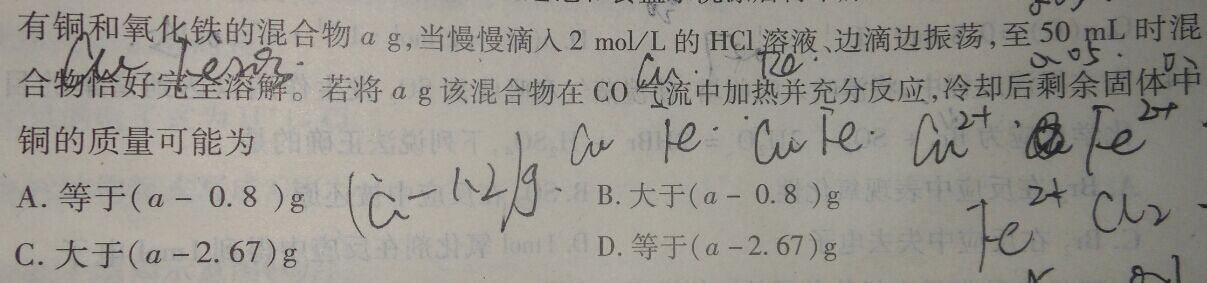 有铜和氧化铁的混合物 a g,当慢慢滴入 2 mol/L 的 HCl 溶液、边滴边振荡,至 50 mL 时混
合物恰好完全溶解。若将 a g 该混合物在 CO 气流中加热并充分反应,冷却后剩余固体中
铜的质量可能为
Cu Fe Cu Fe Cu2+ Fe2+
A. 等于(a - 0.8 )g
B. 大于(a - 0.8 )g
C. 大于(a - 2.67)g
D. 等于(a - 2.67)g